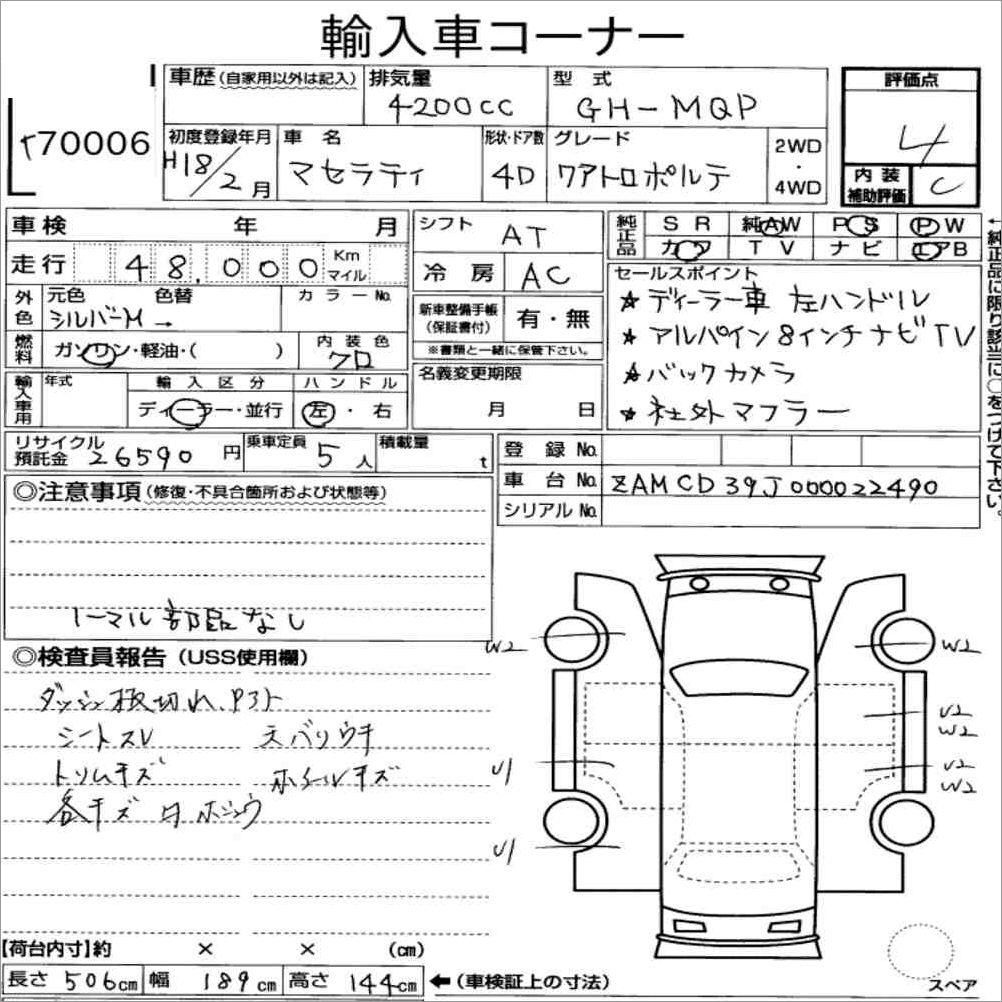 輸入車コーナー
車歴(自家用以外は記入) 排気量 型式 評価点
4200CC GH-MQP
70006 4
初度登録年月 車名 形状・ドア数 グレード 2WD・4WD
H18/2月 マセラティ 4D クアトロポルテ
内装補助評価 C
車検 年 月 シフト AT
純正品 SR 純AW PS PW
カワ TV ナビ エアB
走行 48,000 Km マイル
冷房 AC
セールスポイント
★ディーラー車 左ハンドル
★アルパイン8インチナビTV
★バックカメラ
★社外マフラー
外色 元色 色替 カラーNo.
シルバーM→
新車整備手帳(保証書付) 有・無
※書類と一緒に保管下さい。
燃料 ガソリン・軽油・( ) 内装色 クロ
名義変更期限
月 日
輸入車用 年式 輸入区分 ハンドル
ディーラー・並行 左・右
リサイクル預託金 26590円 乗車定員 5人 積載量 t
登録No.
車台No. ZAMCD39J000022490
シリアルNo.
←純正品に限り該当に○をつけて下さい。
◎注意事項(修復・不具合箇所および状態等)
ノーマル部品なし
◎検査員報告(USS使用欄)
ダッシュ板切れ、
シートスレ 天バリウキ
トリムキズ ホイールキズ
各キズ 凹 ホシュウ
W2 W2
U2
W2
U1 U2
W2
U1
【荷台内寸】約 × × (cm)
長さ 506cm 幅 189cm 高さ 144cm ←(車検証上の寸法)
スペア